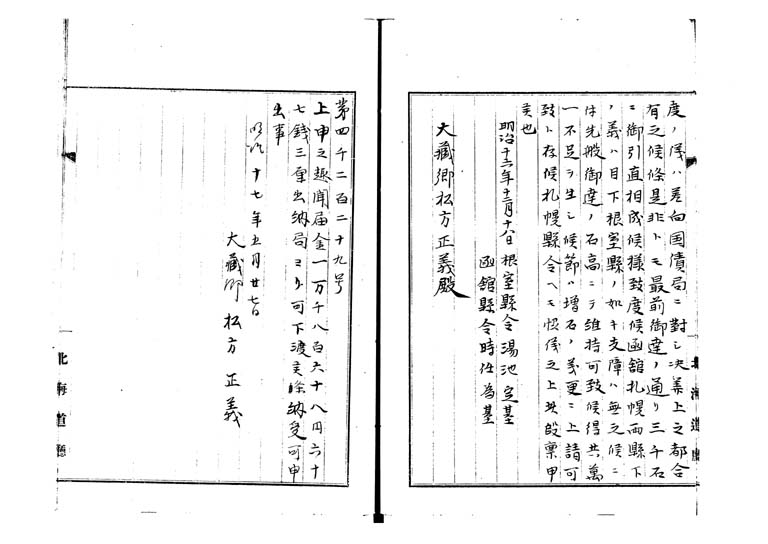 度ノ儀ハ差向国債局ニ対シ决算上之都合
有之候條是非トモ最前御達ノ通リ三千石
ニ御引直相成候様致度候函舘札幌両縣下
ノ義ハ目下根室縣ノ如キ支障ハ無之候ニ
付先般御達ノ石高ニテ維持可致候得共萬
一不足ヲ生シ候節ハ増石ノ義更ニ上請可
致ト存候札幌縣令ヘモ
協儀之上此段稟申
候也
明治十六年十二月十八日 根室縣令湯地定基
函舘縣令時任為基
大藏卿松方正義殿
北海道廳
第四千二百二十九号
上申之趣聞届金一万千八百六十八円六十
七錢三厘出納局ヨリ可下渡候條納受可申
出事
明治十七年五月廿七日
大藏卿松方正義
一
北海道廳